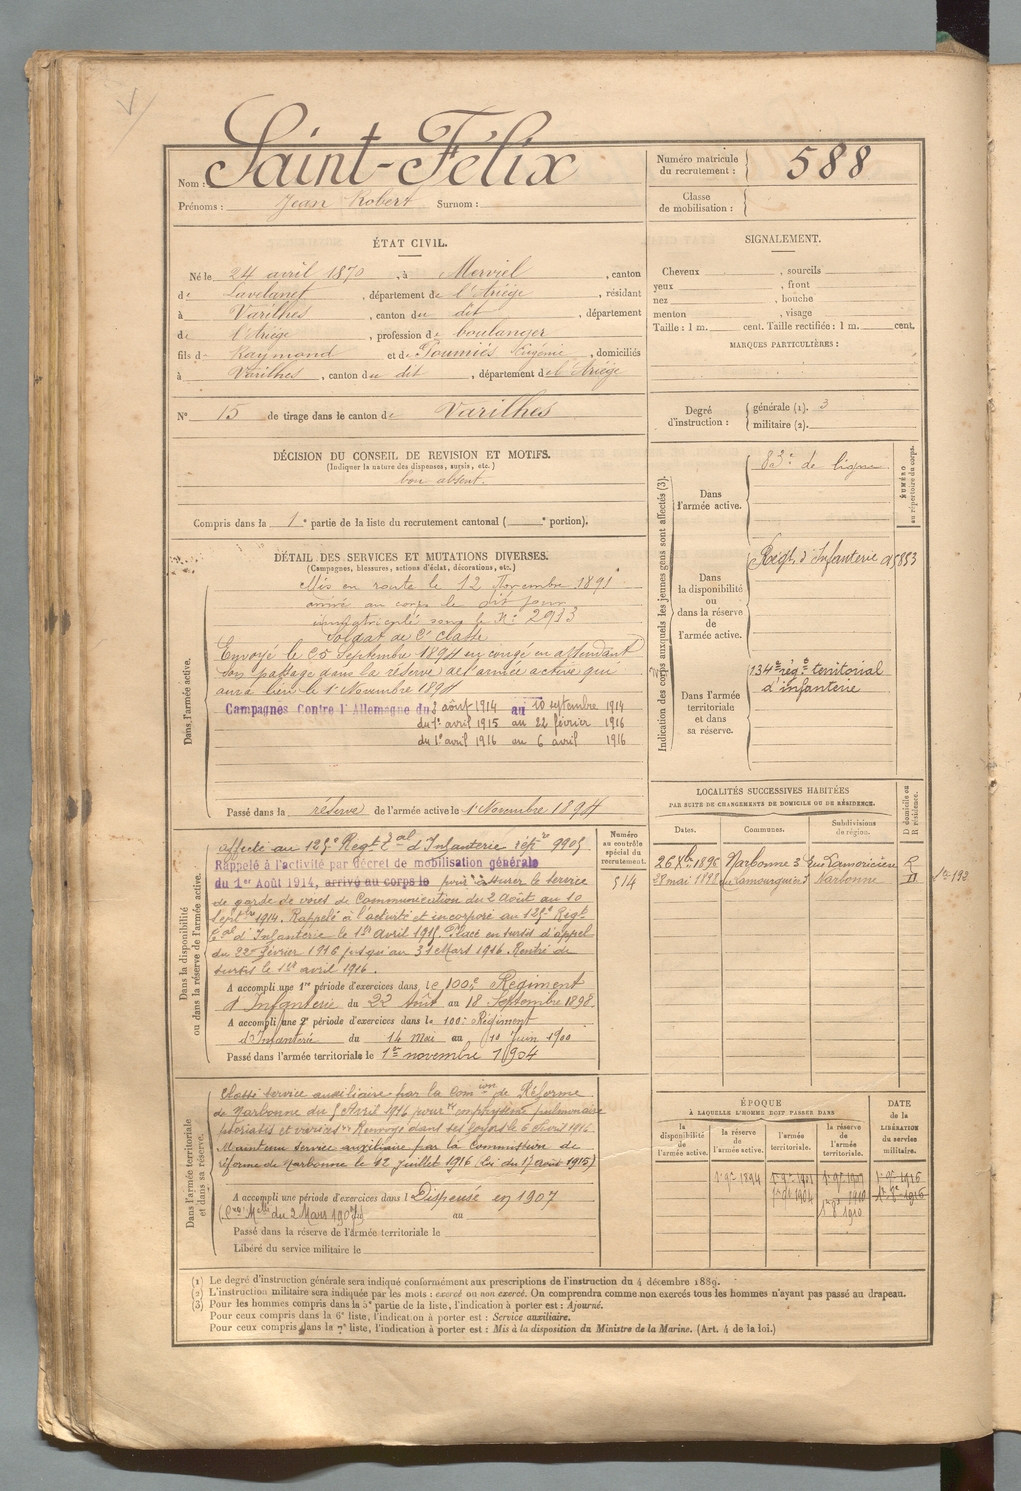 Nom : Saint-Félix
Prénoms : Jean Robert Surnom :
Numéro matricule du recrutement : 588
Classe de mobilisation :
ÉTAT CIVIL.
Né le 24 avril 1870, à Merviel, canton
de Lavelanet, département de l'Ariège, résidant
à Varilhes, canton du dit, département
de l'Ariège, profession de boulanger
fils de Raymond et de Poumiés Eugénie, domiciliés
à Varilhes, canton du dit, département de l'Ariège
N° 15 de tirage dans le canton de Varilhes
SIGNALEMENT.
Cheveux , sourcils
yeux , front
nez , bouche
menton , visage
Taille : 1 m. cent. Taille rectifiée : 1 m. cent.
MARQUES PARTICULIÈRES :
Degré d'instruction : générale (1). 3
militaire (2).
DÉCISION DU CONSEIL DE REVISION ET MOTIFS.
(Indiquer la nature des dispenses, sursis, etc.)
bon absent.
Compris dans la 1e partie de la liste du recrutement cantonal ( e portion).
DÉTAIL DES SERVICES ET MUTATIONS DIVERSES.
(Campagnes, blessures, actions d'éclat, décorations, etc.)
Dans l'armée active.
Mis en route le 12 Novembre 1891
arrivé au corps le dit jour
immatriculé sous le N° 2933
Soldat de 2e classe
Envoyé le 25 Septembre 1894 en congé en attendant
son passage dans la réserve de l'armée active qui
aura lieu le 1 Novembre 1894
Campagnes Contre l'Allemagne du 2 août 1914 au 10 septembre 1914
du 1er avril 1915 au 22 février 1916
du 1er avril 1916 au 6 avril 1916
Passé dans la réserve de l'armée active le 1 Novembre 1894
Indication des corps auxquels les jeunes gens sont affectés (3).
NUMÉRO au répertoire du corps.
Dans l'armée active.
83e de ligne
Dans la disponibilité ou dans la réserve de l'armée active.
Régt d'Infanterie 5853
Dans l'armée territoriale et dans sa réserve.
134e rég t territorial
d'infanterie
Dans la disponibilité ou dans la réserve de l'armée active.
affecté au 125e Régt d'Infanterie 9905
Rappelé à l'activité par décret de mobilisation générale
du 1er Août 1914, arrivé au corps le pour assurer le service
de garde de voies de Communication du 2 Août au 10
Septbre 1914. Rappelé à l'activité et incorporé au 125e Régt
tal d'Infanterie le 1er Avril 1915. Placé en sursis d'appel
du 22 février 1916 jusqu'au 31 Mars 1916. Rentré de
sursis le 1er avril 1916.
A accompli une 1re période d'exercices dans le 100e Régiment
d'Infanterie du 22 Août au 18 Septembre 1898
A accompli une 2e période d'exercices dans le 100e Régiment
d'Infanterie du 14 Mai au 10 Juin 1900
Passé dans l'armée territoriale le 1er novembre 1904
Numéro au contrôle spécial du recrutement.
514
LOCALITÉS SUCCESSIVES HABITÉES
PAR SUITE DE CHANGEMENTS DE DOMICILE OU DE RÉSIDENCE.
Dates. Communes. Subdivisions de région. D domicile ou R résidence.
26 Xbre 1896 Narbonne 3 rue Lamoricière R
28 mai 1898 Lamourguier 3 Narbonne D
Dans l'armée territoriale et dans sa réserve.
Classé service auxiliaire par la Comion de Réforme
de Narbonne du 5 Avril 1916 pour emphysème pulmonaire
et varices Renvoyé dans ses foyers le 6 Avril 1916.
Maintenu service auxiliaire par la Commission de
réforme de Narbonne le 12 Juillet 1916 (Loi du 17 août 1915)
A accompli une période d'exercices dans l Dispensé en 1907
( du 2 Mars 1907) au
Passé dans la réserve de l'armée territoriale le
Libéré du service militaire le
ÉPOQUE
À LAQUELLE L'HOMME DOIT PASSER DANS
la disponibilité de l'armée active. la réserve de l'armée active. l'armée territoriale. la réserve de l'armée territoriale.
DATE de la LIBÉRATION du service militaire.
1er 9bre 1894
(1) Le degré d'instruction générale sera indiqué conformément aux prescriptions de l'instruction du 4 décembre 1889.
(2) L'instruction militaire sera indiquée par les mots : exercé ou non exercé. On comprendra comme non exercés tous les hommes n'ayant pas passé au drapeau.
(3) Pour les hommes compris dans la 5e partie de la liste, l'indication à porter est : Ajourné.
Pour ceux compris dans la 6e liste, l'indication à porter est : Service auxiliaire.
Pour ceux compris dans la 7e liste, l'indication à porter est : Mis à la disposition du Ministre de la Marine. (Art. 4 de la loi.)